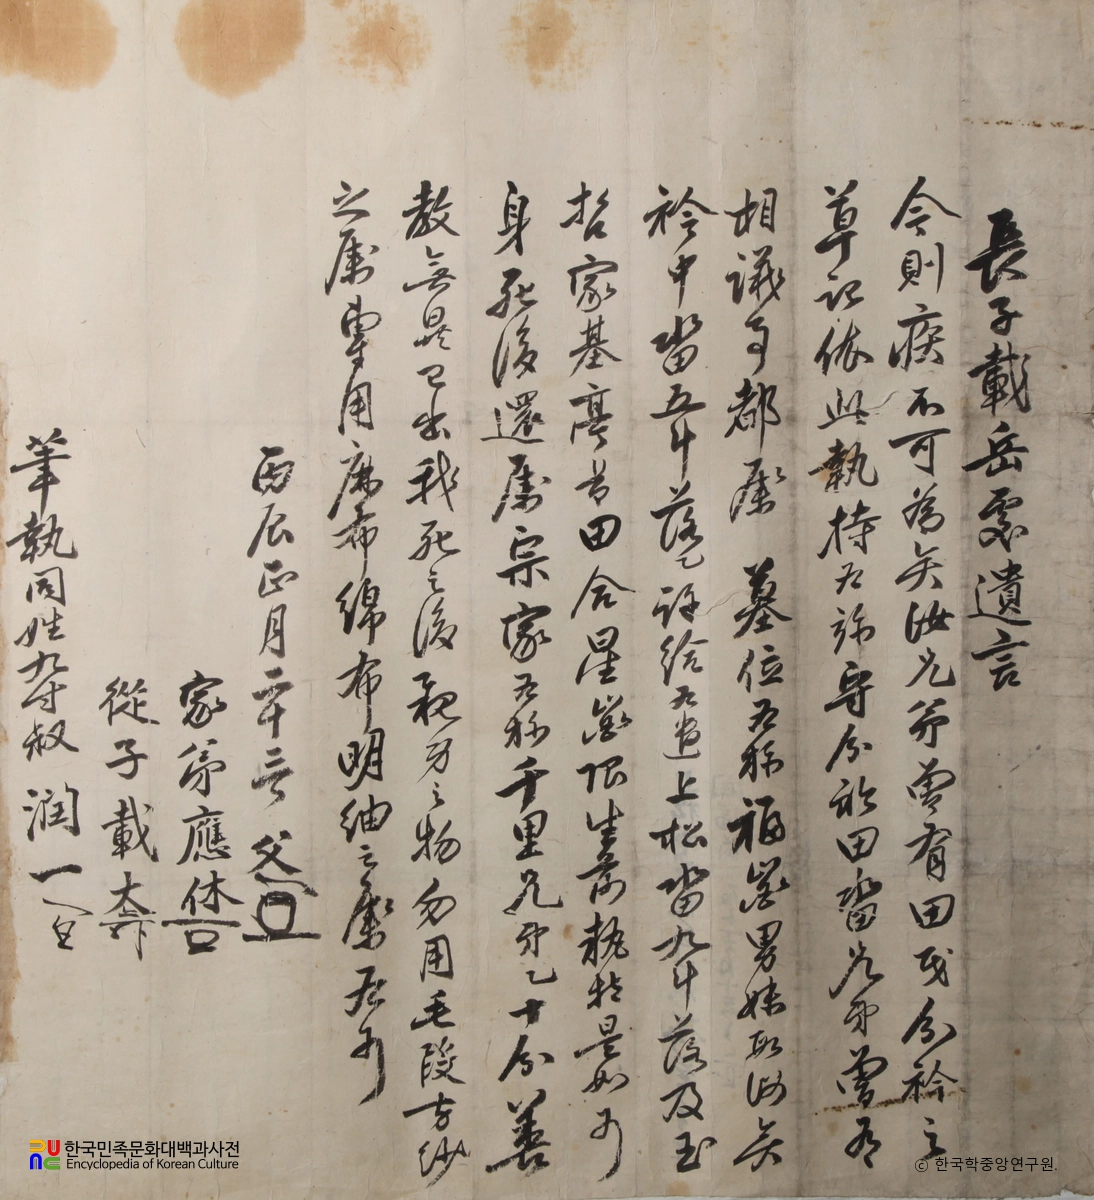 長子載岳處遺言
今則疾不可爲矣汝兄弟曾有田民分衿之
草記依此執持爲旀 分 田畓兄弟曾有
相議 都 墓位爲旀福 男妹 矣
衿中畓五斗落 許給爲遣上松畓九斗落及玉
招家基 田合 生前執持是如可
身死後還屬宗家爲旀千里兄弟 十分善
教無 出我死之後 身之物勿用毛段 紗
之屬專用麻布綿布明紬之屬爲可
丙辰正月二十三 父
家弟應休
從子載
筆執同姓九寸叔 潤一
한국민족문화대백과사전
Encyclopedia of Korean Culture
© 한국학중앙연구원.